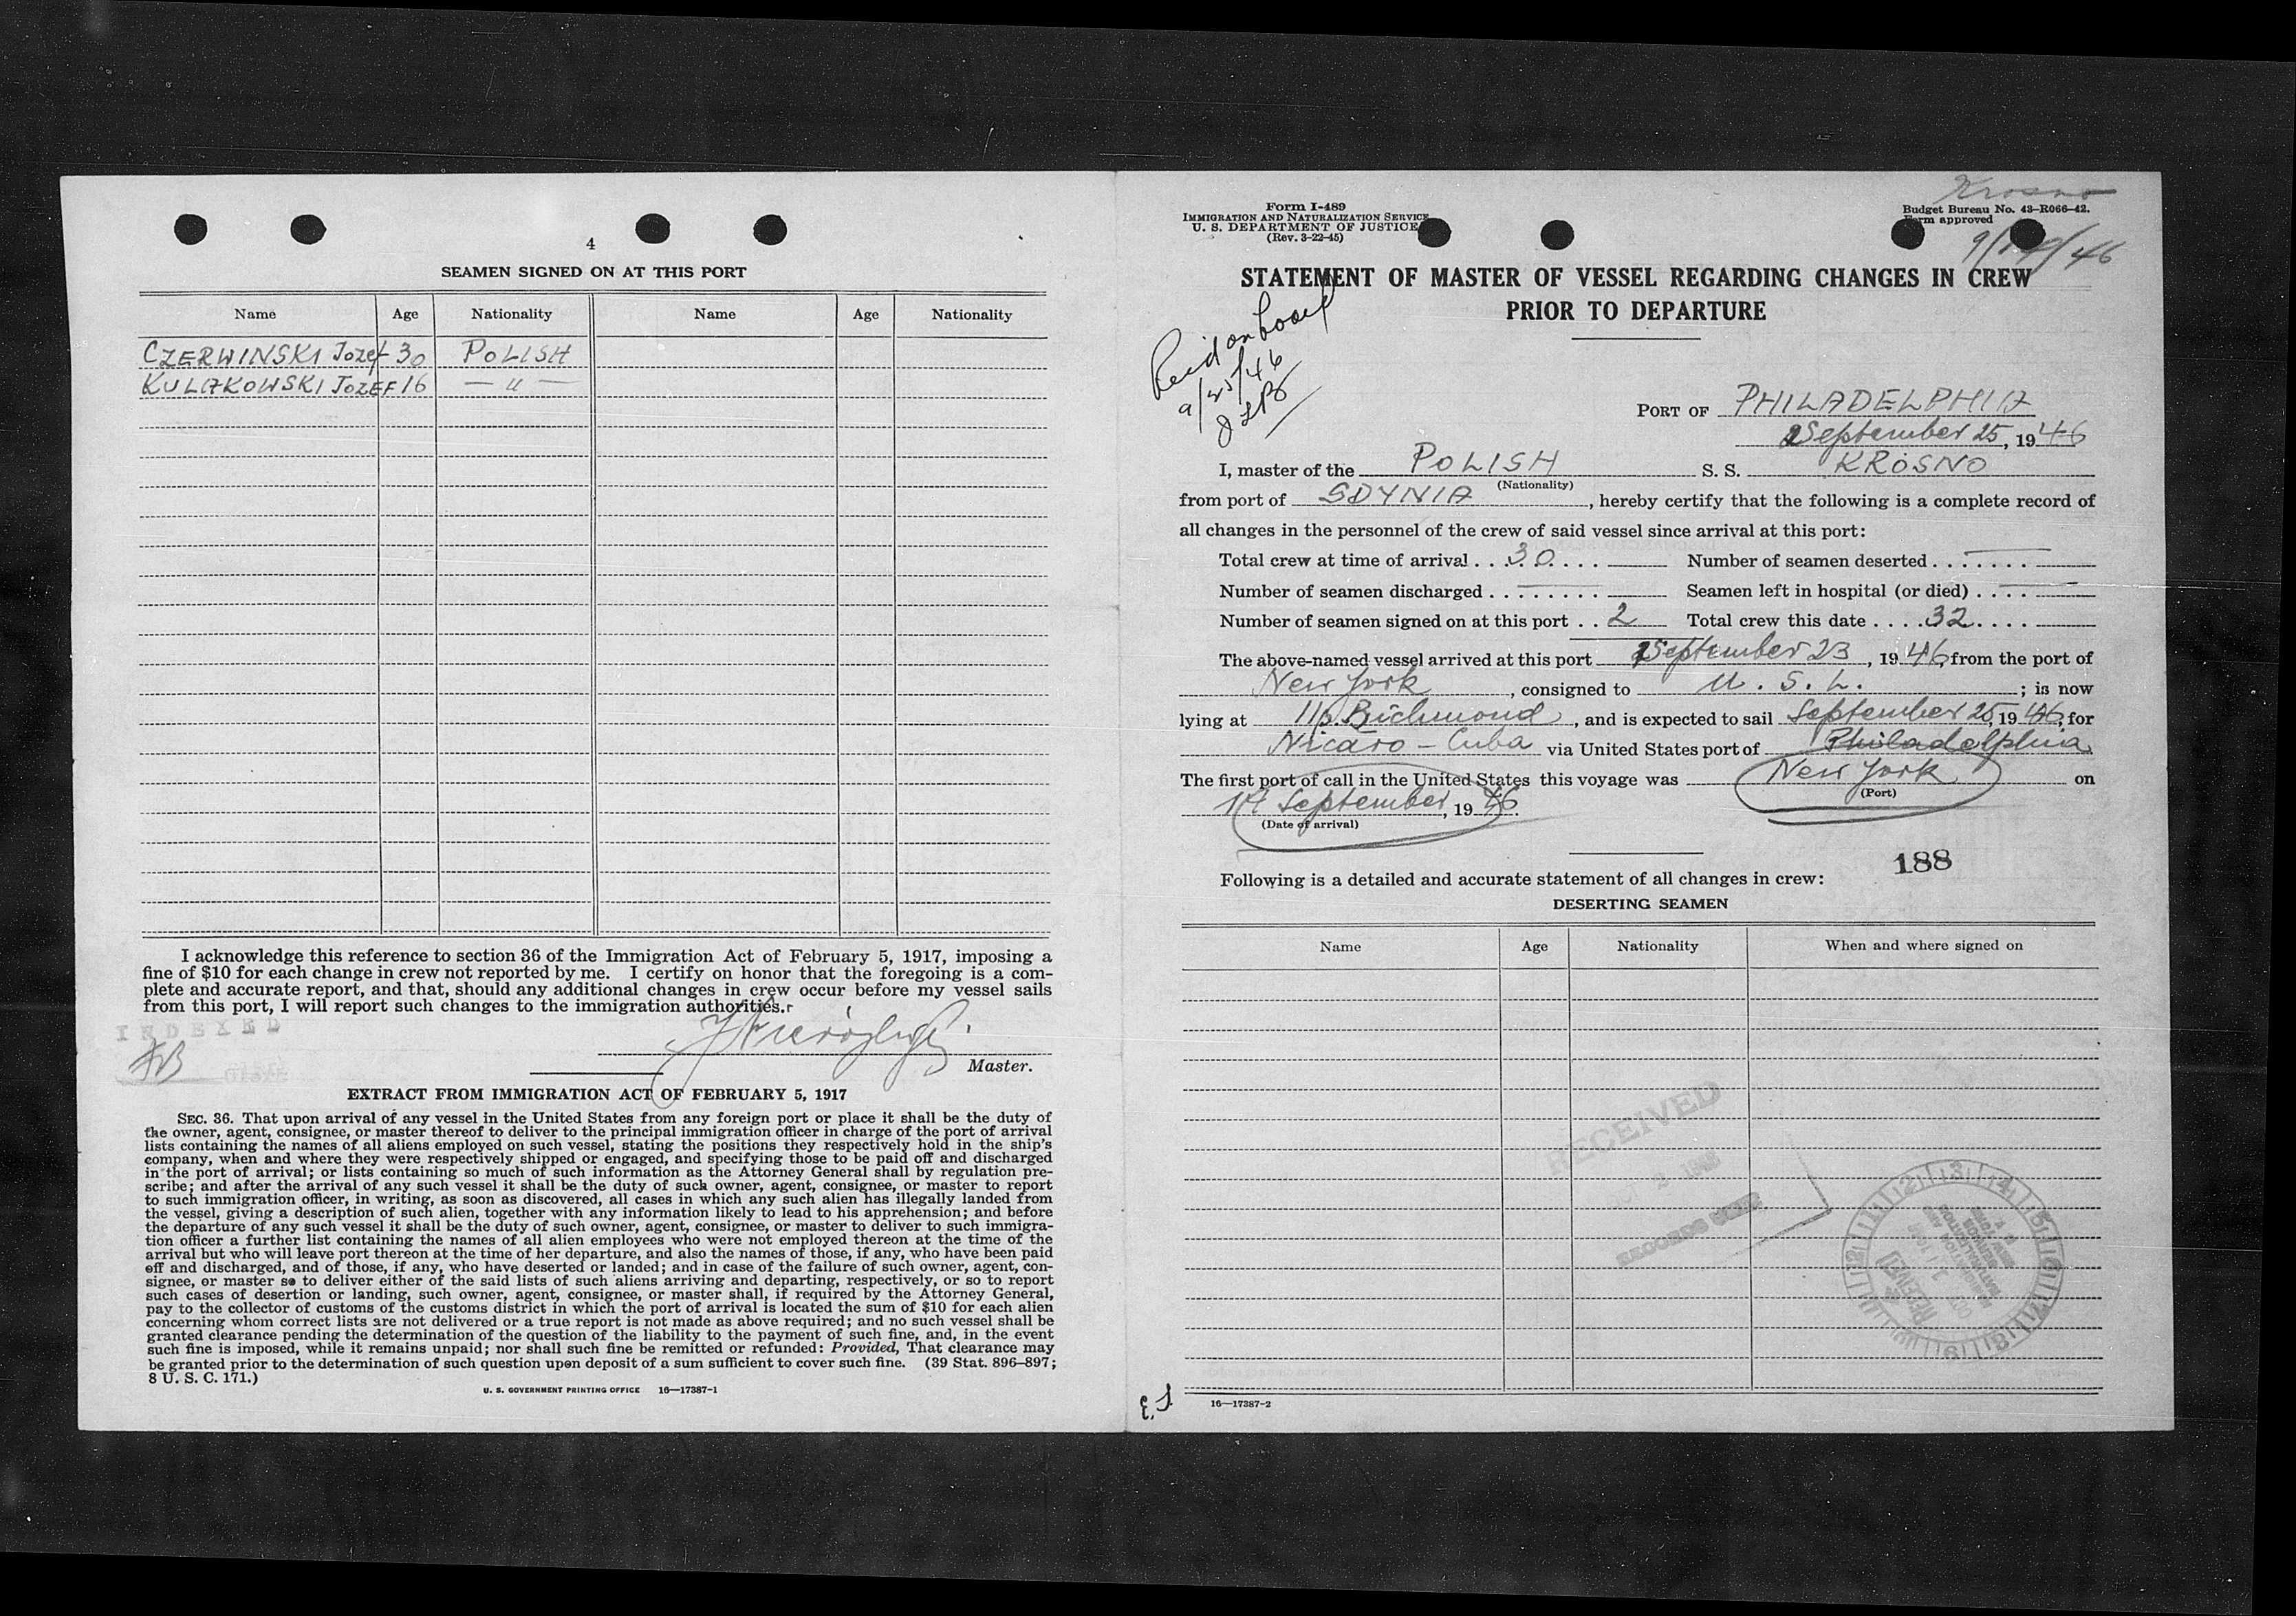 4
SEAMEN SIGNED ON AT THIS PORT
Name Age Nationality Name Age Nationality
CZERWINSKI Jozef 30 POLISH
KULAKOWSKI JOZEF 16 — " —
I acknowledge this reference to section 36 of the Immigration Act of February 5, 1917, imposing a
fine of $10 for each change in crew not reported by me. I certify on honor that the foregoing is a com-
plete and accurate report, and that, should any additional changes in crew occur before my vessel sails
from this port, I will report such changes to the immigration authorities.
INDEXED
Master.
EXTRACT FROM IMMIGRATION ACT OF FEBRUARY 5, 1917
SEC. 36. That upon arrival of any vessel in the United States from any foreign port or place it shall be the duty of
the owner, agent, consignee, or master thereof to deliver to the principal immigration officer in charge of the port of arrival
lists containing the names of all aliens employed on such vessel, stating the positions they respectively hold in the ship's
company, when and where they were respectively shipped or engaged, and specifying those to be paid off and discharged
in the port of arrival; or lists containing so much of such information as the Attorney General shall by regulation pre-
scribe; and after the arrival of any such vessel it shall be the duty of such owner, agent, consignee, or master to report
to such immigration officer, in writing, as soon as discovered, all cases in which any such alien has illegally landed from
the vessel, giving a description of such alien, together with any information likely to lead to his apprehension; and before
the departure of any such vessel it shall be the duty of such owner, agent, consignee, or master to deliver to such immigra-
tion officer a further list containing the names of all alien employees who were not employed thereon at the time of the
arrival but who will leave port thereon at the time of her departure, and also the names of those, if any, who have been paid
off and discharged, and of those, if any, who have deserted or landed; and in case of the failure of such owner, agent, con-
signee, or master so to deliver either of the said lists of such aliens arriving and departing, respectively, or so to report
such cases of desertion or landing, such owner, agent, consignee, or master shall, if required by the Attorney General,
pay to the collector of customs of the customs district in which the port of arrival is located the sum of $10 for each alien
concerning whom correct lists are not delivered or a true report is not made as above required; and no such vessel shall be
granted clearance pending the determination of the question of the liability to the payment of such fine, and, in the event
such fine is imposed, while it remains unpaid; nor shall such fine be remitted or refunded: Provided, That clearance may
be granted prior to the determination of such question upon deposit of a sum sufficient to cover such fine. (39 Stat. 896–897;
8 U. S. C. 171.)
U. S. GOVERNMENT PRINTING OFFICE 16—17387-1
Krosno
Form I-489
IMMIGRATION AND NATURALIZATION SERVICE
U. S. DEPARTMENT OF JUSTICE
(Rev. 3-22-45)
Budget Bureau No. 43-R066-42.
Form approved
STATEMENT OF MASTER OF VESSEL REGARDING CHANGES IN CREW
PRIOR TO DEPARTURE
9/25/46
PORT OF PHILADELPHIA
September 25, 1946
I, master of the POLISH S. S. KROSNO
(Nationality)
from port of GDYNIA, hereby certify that the following is a complete record of
all changes in the personnel of the crew of said vessel since arrival at this port:
Total crew at time of arrival . . . 30 . . . . Number of seamen deserted . . . . . . . —
Number of seamen discharged . . . . . . . . — Seamen left in hospital (or died) . . . . —
Number of seamen signed on at this port . . 2 Total crew this date . . . . 32 . . . .
The above-named vessel arrived at this port September 23, 1946, from the port of
New York, consigned to U. S. L. ; is now
lying at Richmond, and is expected to sail September 25, 1946, for
Nicaro - Cuba via United States port of Philadelphia
The first port of call in the United States this voyage was New York on
(Port)
September, 1946.
(Date of arrival)
188
Following is a detailed and accurate statement of all changes in crew:
DESERTING SEAMEN
Name Age Nationality When and where signed on
RECEIVED
RECORDS
16—17387-2